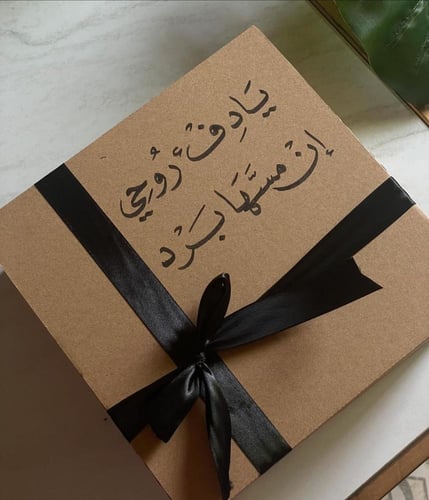 يَادِفْ رُوُحِي
إنْ مسَّهَا بَرْد